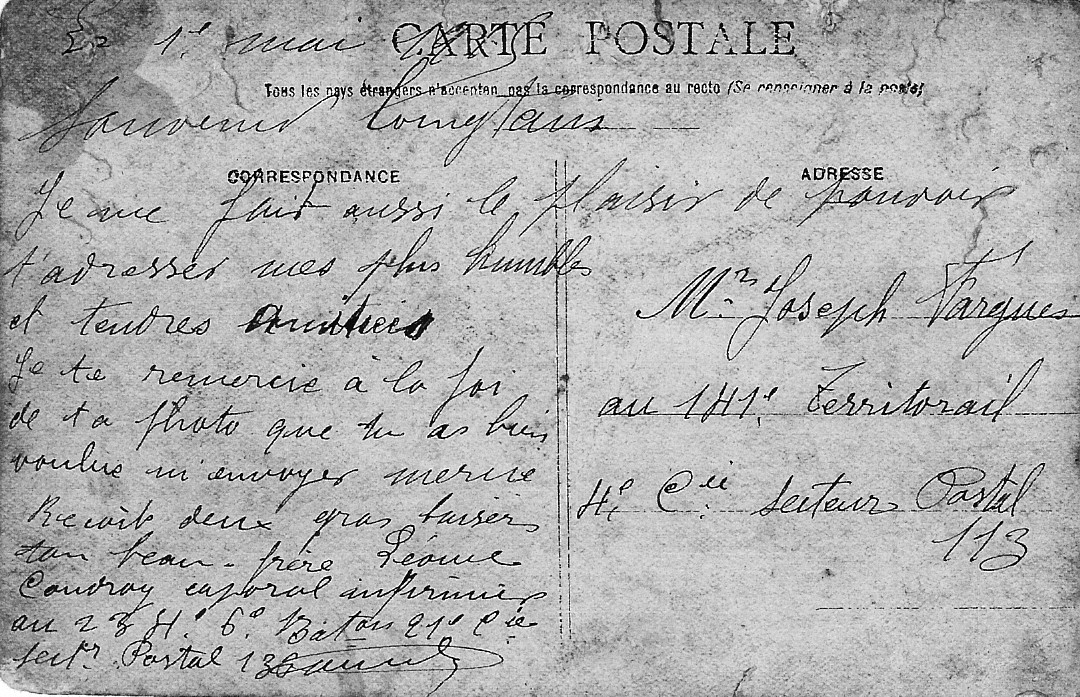 1er mai
CARTE POSTALE
Tous les pays étrangers n'acceptent pas la correspondance au recto (Se renseigner à la poste)
Souvenir Lointains
CORRESPONDANCE
ADRESSE
Je me fait aussi le plaisir de pouvoir
t'adresser mes plus humbles
et tendres amitiés
Je te remercie à la foi
de ta photo que tu as bien
voulue m'envoyer
Recoit deux gros baiser
ton beau-frère Léonce
Coudroy caporal infirmier
au 234e 6e Baton 21e Cie
Sectr Postal 13
Mr Joseph Fargues
au 141e Territorail
4e Cie Secteur Postal
113